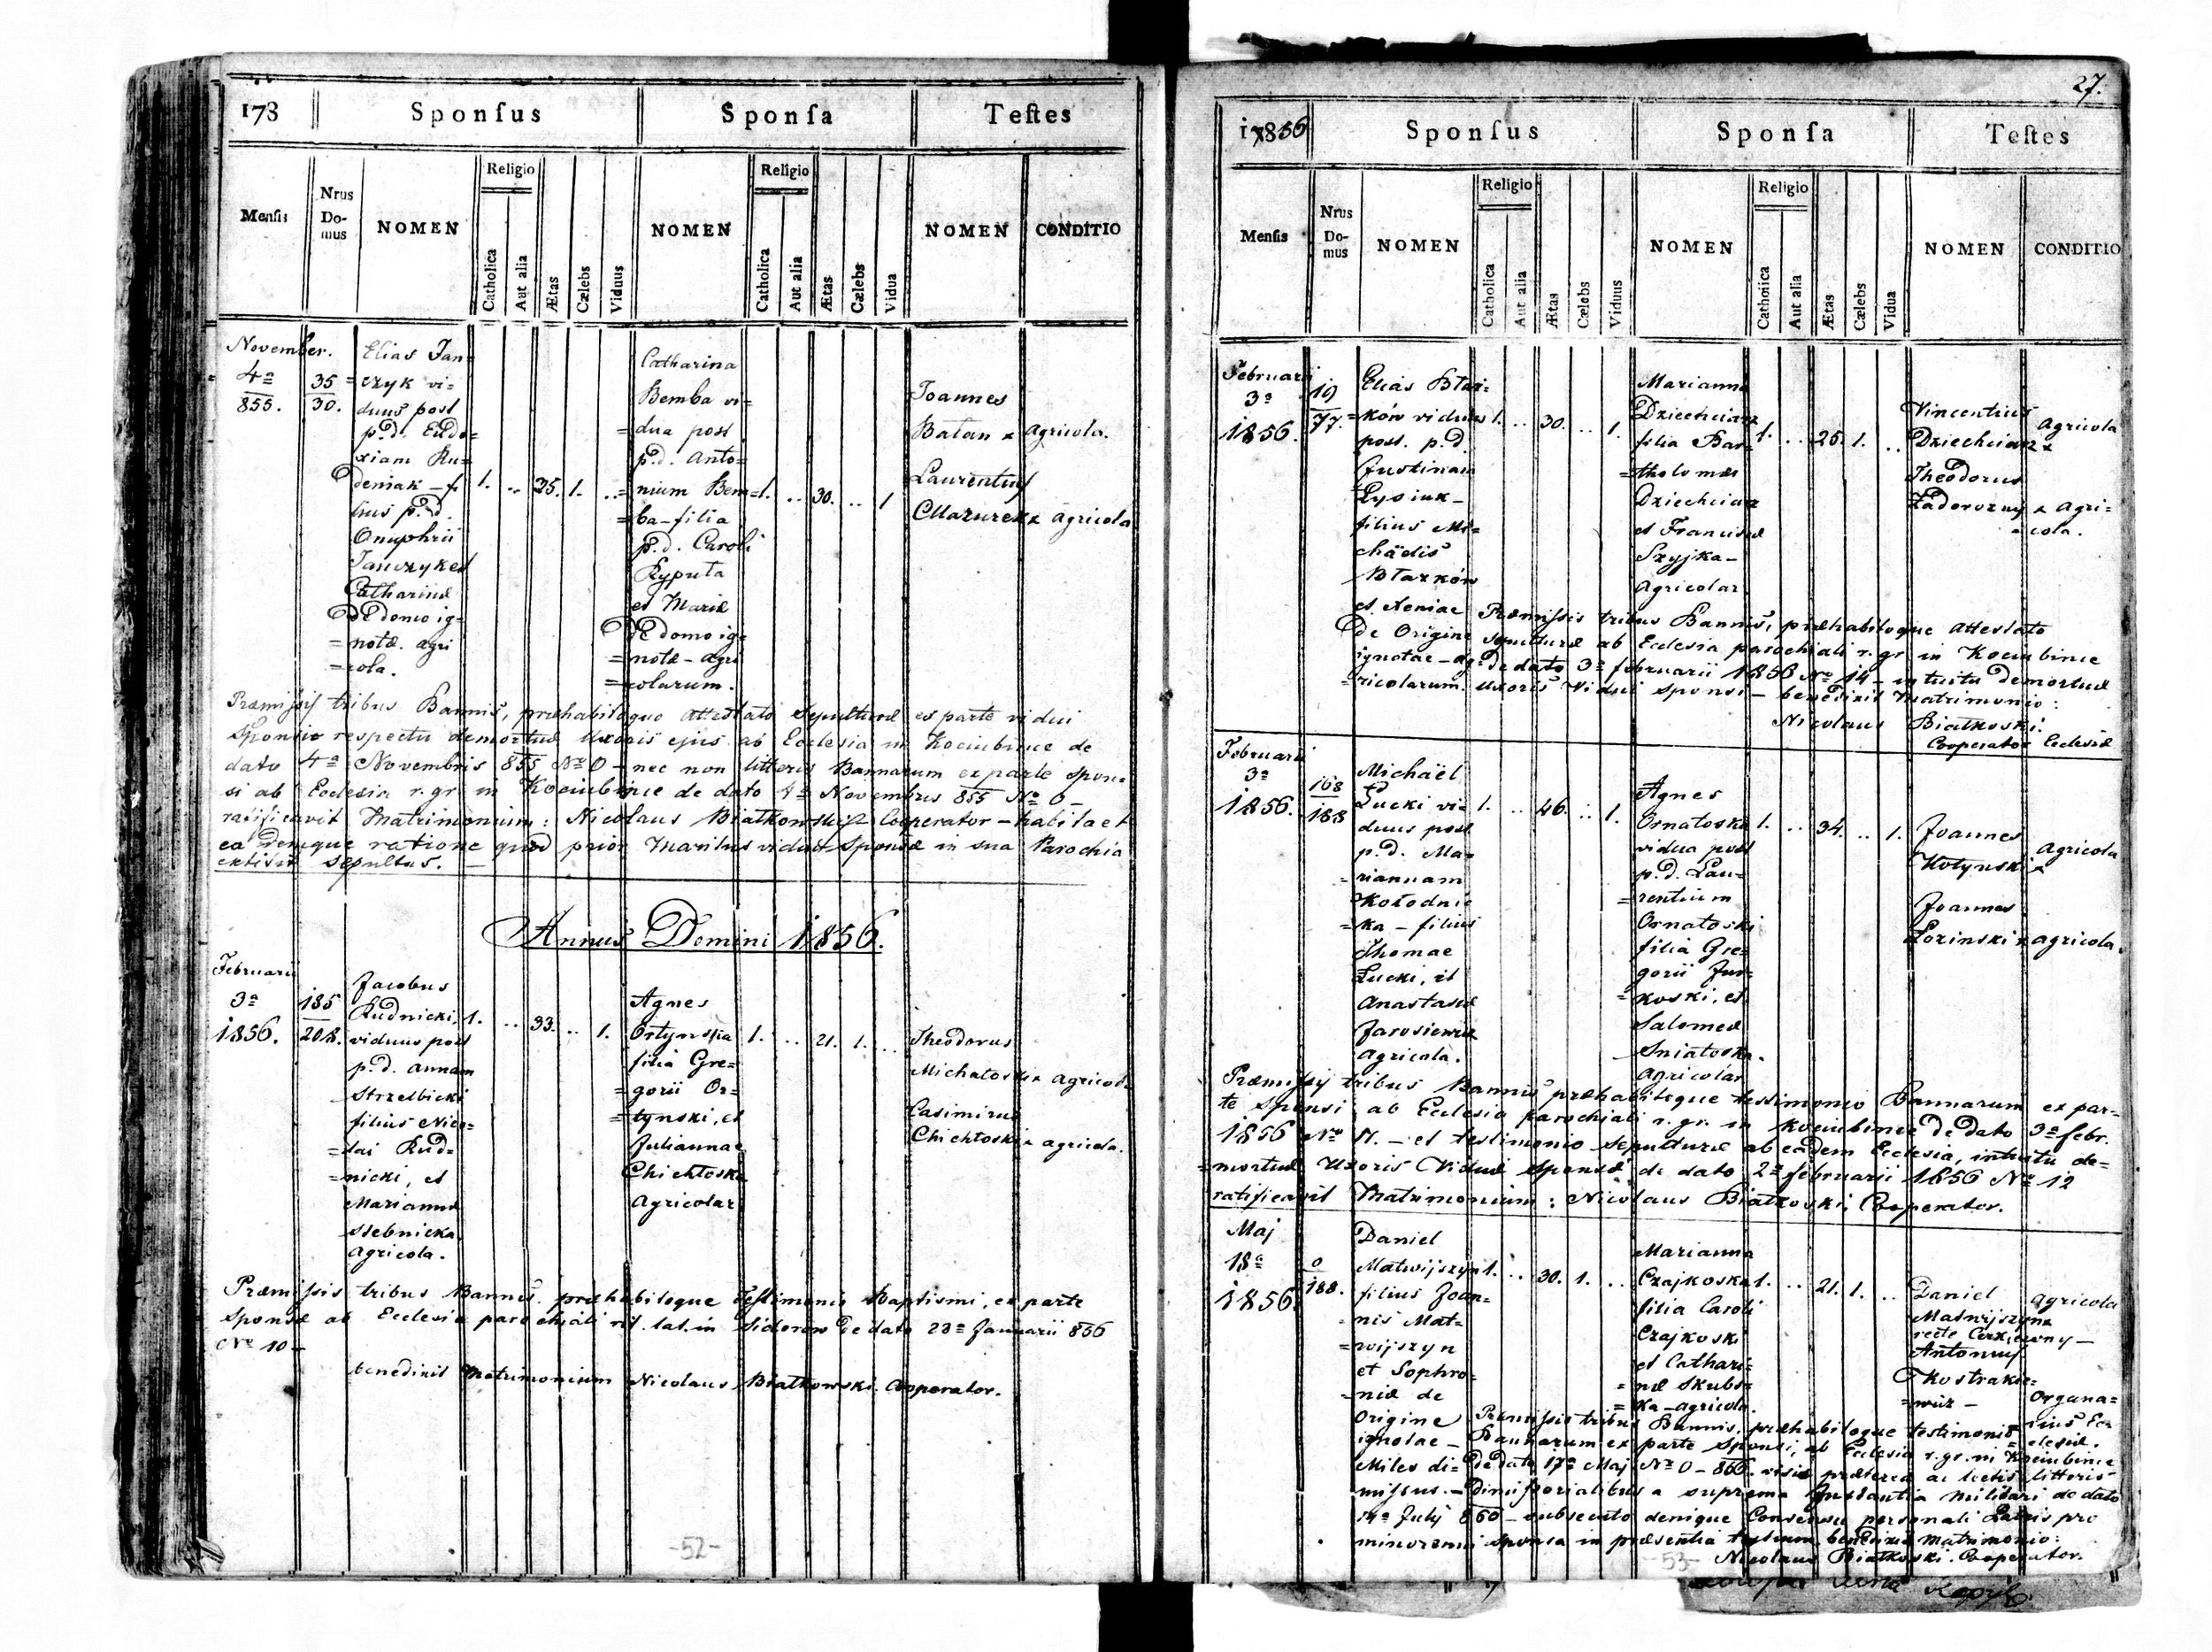 173
Sponſus
Sponſa
Teſtes
Menſis
Nrus Do-mus
NOMEN
Religio
Catholica
Aut alia
Ætas
Cælebs
Viduus
NOMEN
Religio
Catholica
Aut alia
Ætas
Cælebs
Vidua
NOMEN
CONDITIO
November.
4ª
855.
35
30.
Elias Jan=
czyk vi=
duus post
p.d. Eudo=
xiam Ru=
deniak – fi
lius p.d.
Onuphrii
Janczyk et
Catharinæ
de domo ig=
=notæ. agri
=cola.
1. .. 35. 1. ..
Catharina
Bemba vi=
=dua post
p.d. Anto=
=nium Bem=
=ba – filia
p.d. Caroli
Ryputa
et Mariæ
de domo ig=
=notæ – agri
=colarum.
1. .. 30. .. 1
Joannes
Batan x agricola.
Laurentius
Mazurek x agricola
Præmissis tribus Bannis, præhabitoque attestato sepulturæ ex parte vidui
Sponsi respectu demortuæ Uxoris ejus ab Ecclesia in Kociubince de
dato 4ª Novembris 855 Nº 0 – nec non litteris Bannarum ex parte Spon=
si ab Ecclesia r.gr. in Kociubince de dato 4ª Novembris 855 Nº 0 –
ratificavit Matrimonium: Nicolaus Białkowski Cooperator – habita et
ea denique ratione quod prior Maritus viduæ Sponsæ in sua Parochia
extitit sepultus.
Annus Domini 1856.
Februarii
3ª
1856.
185
208.
Jacobus
Rudnicki,
viduus post
p.d. Annam
Strzelbicki
filius Nico=
=lai Rud=
=nicki, et
Mariannæ
Stebnicka
agricola.
1. .. 33. .. 1.
Agnes
Ortynska
filia Gre=
=gorii Or=
=tynski, et
Juliannae
Chichłoska
Agricolar.
1. .. 21. 1. ..
Theodorus
Michałoski x agricola
Casimirus
Chichłoski x agricola.
Præmissis tribus Bannis. præhabitoque Testimonio Baptismi, ex parte
Sponsæ ab Ecclesia parochiali rit. lat. in Sidorow de dato 28ª Januarii 856
Nº 10 –
benedixit Matrimonium Nicolaus Białkowski. Cooperator.
-52-
27.
1856
Sponſus
Sponſa
Teſtes
Menſis
Nrus Do-mus
NOMEN
Religio
Catholica
Aut alia
Ætas
Cælebs
Viduus
NOMEN
Religio
Catholica
Aut alia
Ætas
Cælebs
Vidua
NOMEN
CONDITIO
Februarii
3ª
1856.
19
77.
Elias Błaz=
=ków viduus
post. p.d.
Justinam
Łysiuk –
filius Mi=
chäelis
Błazków
et Xeniae
de Origine
ignotae – ag=
=ricolarum.
1. .. 30. .. 1.
Marianna
Dziechciarz
filia Bar=
=tholomæi
Dziechciarz
et Franciscæ
Szyjka –
agricolar.
1. .. 25. 1. ..
Vincentius
Dziechciarz x
agricola
Theodorus
Zadorozny x agri=
=cola.
Præmissis tribus Bannis, præhabitoque attestato
sepulturæ ab Ecclesia parochiali r.gr. in Kociubince
de dato 3ª februarii 1856 Nº 14 – intuitu demortuæ
uxoris Vidui sponsi – benedixit Matrimonio:
Nicolaus Białkoski.
Cooperator Ecclesiæ
Februarii
3ª
1856.
168
188
Michäel
Łucki vi=
duus post
p.d. Ma=
=riannam
Kołodnic
=ka – filius
Thomae
Łucki, et
Anastasiæ
Jarosiewicz
agricola.
1. .. 46. .. 1.
Agnes
Ornatoska
vidua post
p.d. Lau=
=rentium
Ornatoski
filia Gre=
gorii Jur=
=koski, et
Salomeæ
Sniatoska.
agricolar
1. .. 34. .. 1.
Joannes
Hołynski x
agricola
Joannes
Łozinski x agricola.
Præmissis tribus Bannis præhabitoque testimonio Bannarum ex par=
te Sponsi ab Ecclesia parochiali r.gr. in Kociubince de dato 3ª febr.
1856 Nº 17. – et testimonio sepulturæ ab eadem Ecclesia, intuitu de=
=mortuæ Uxoris Vidui Sponsi de dato 2ª februarii 1856 Nº 12
ratificavit Matrimonium: Nicolaus Białkoski. Cooperator.
Maj
18ª
1856.
0
188.
Daniel
Matwijszyn
filius Joan=
=nis Mat=
=wijszyn
et Sophro=
=niæ de
Origine
ignotae –
Miles di=
missus. –
1. .. 30. 1. ..
Marianna
Czajkoska
filia Caroli
Czajkoski
et Cathari=
=næ Skubs=
=ka – agricola.
1. .. 21. 1. ..
Daniel
Matwijszyn x
agricola
recte
Antonius
Kostrakie=
=wicz –
Organa=
rius Ec=
clesiæ.
Præmissis tribus Bannis, præhabitoque testimonio
Bannarum ex parte Sponsi, ab Ecclesia r.gr. in Kociubince
de dato 17ª Maj Nº 0 – 856. visis præterea ac lectis litteris
Dimissorialibus a suprema Instantia Militari de dato
14ª July 850 – subsecuto denique Consensu personali Patris pro
minorenni sponsa in præsentia testium benedixit Matrimonio:
Nicolaus Białkoski. Cooperator.
-53-